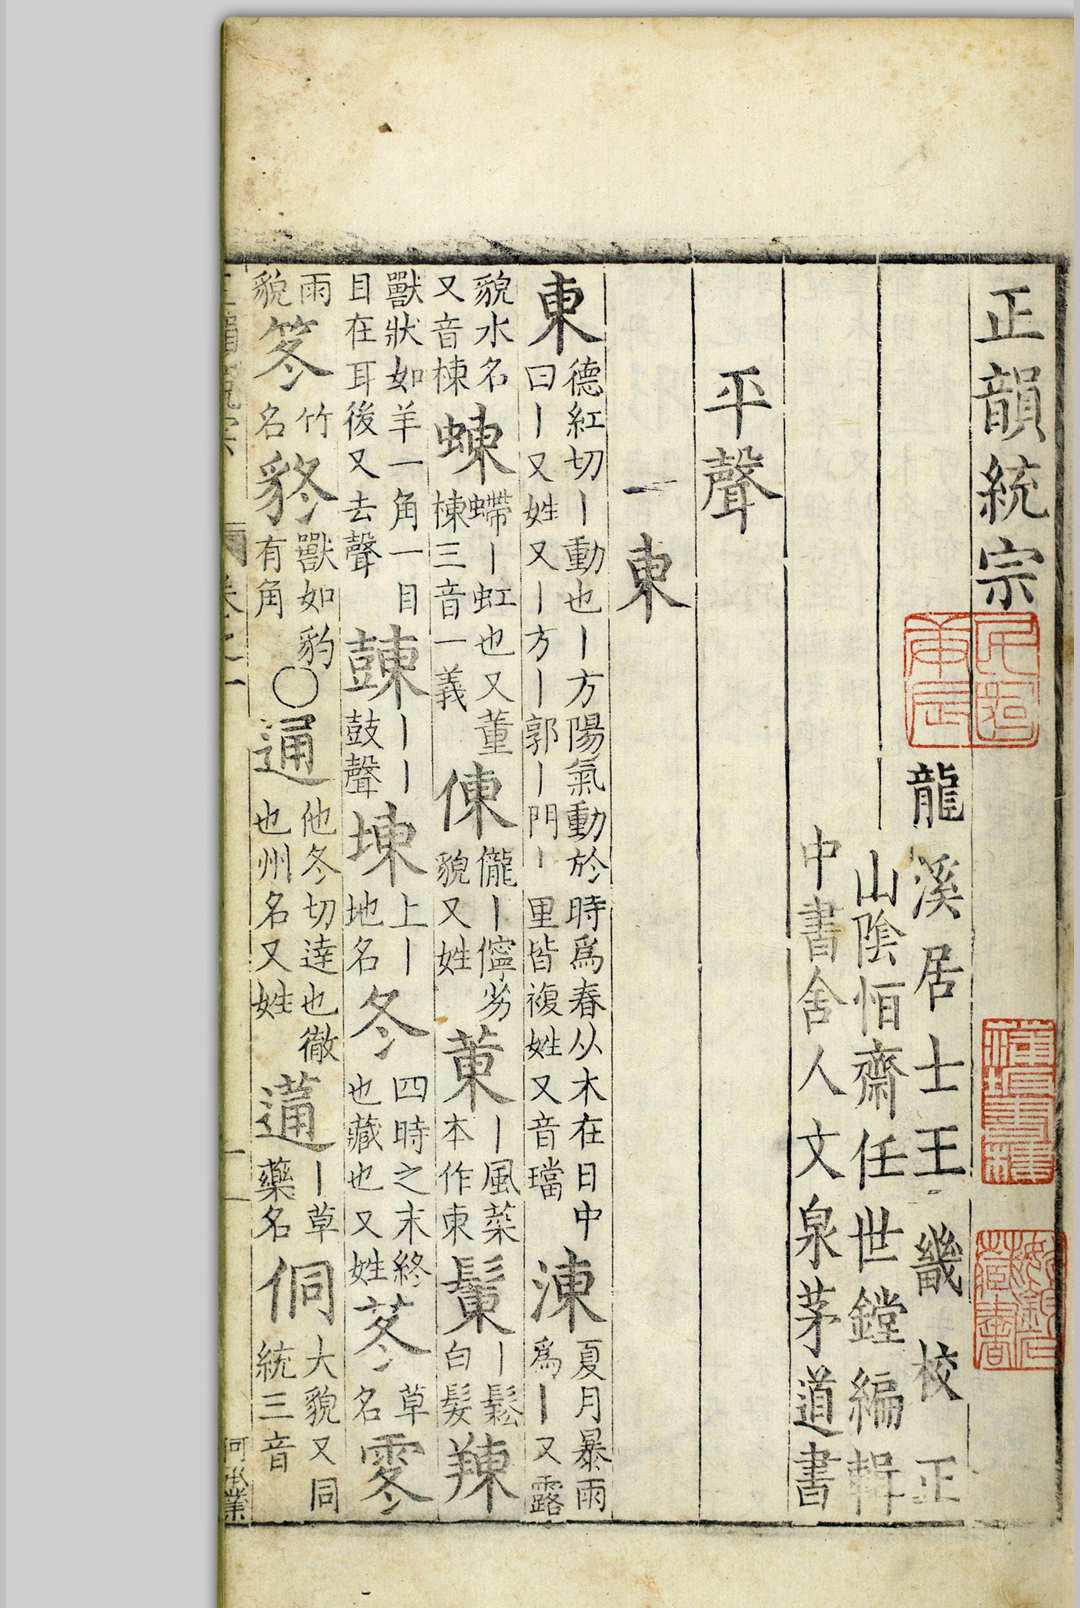 正韻統宗
龍溪居士王畿校正
山陰恒齋任世鏜編輯
中書舍人文泉茅道書
平聲
一東
東德紅切丨動也丨方陽氣動於時為春从木在日中曰丨又姓又丨方丨郭丨門丨里皆複姓又音璫涷夏月暴雨為丨又露
貌水名又音棟蝀螮丨虹也又董棟三音一義倲儱丨儜劣貌又姓菄丨風菜本作東鬉丨鬆白髮䍶
獸狀如羊一角一目目在耳後又去聲𪔜丨丨鼓聲埬上丨地名冬四時之末終也藏也又姓苳草名䨵
雨貌笗竹名㣠獸如豹有角〇通他冬切達也徹也州名又姓蓪丨草藥名侗大貌又同統三音